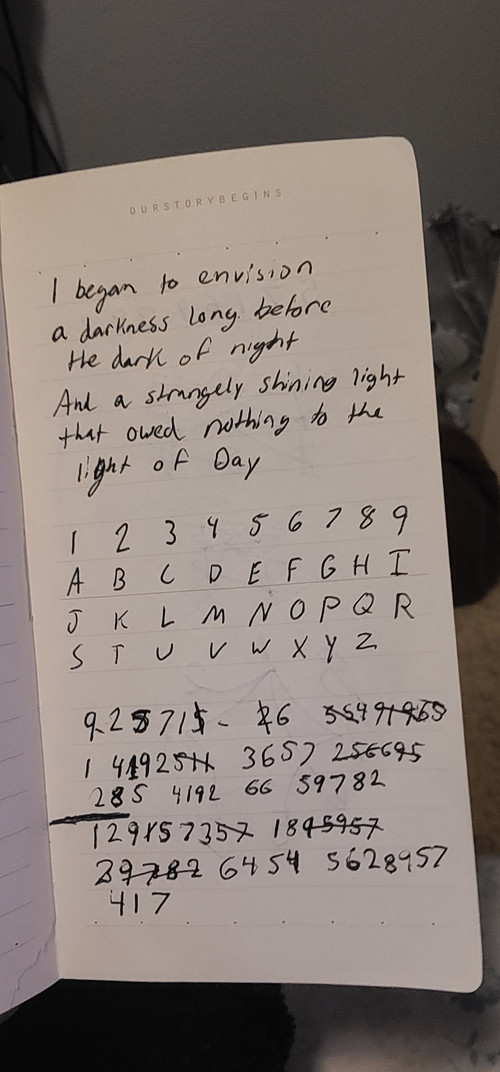 OURSTORYBEGINS
I began to envision
a darkness long before
the dark of night
And a strangely shining light
that owed nothing to the
light of Day
1 2 3 4 5 6 7 8 9
A B C D E F G H I
J K L M N O P Q R
S T U V W X Y Z
925715- 26 55491965
1 4192511 3657 256695
285 4192 66 59782
129157357 1895957
29782 6454 5628957
417